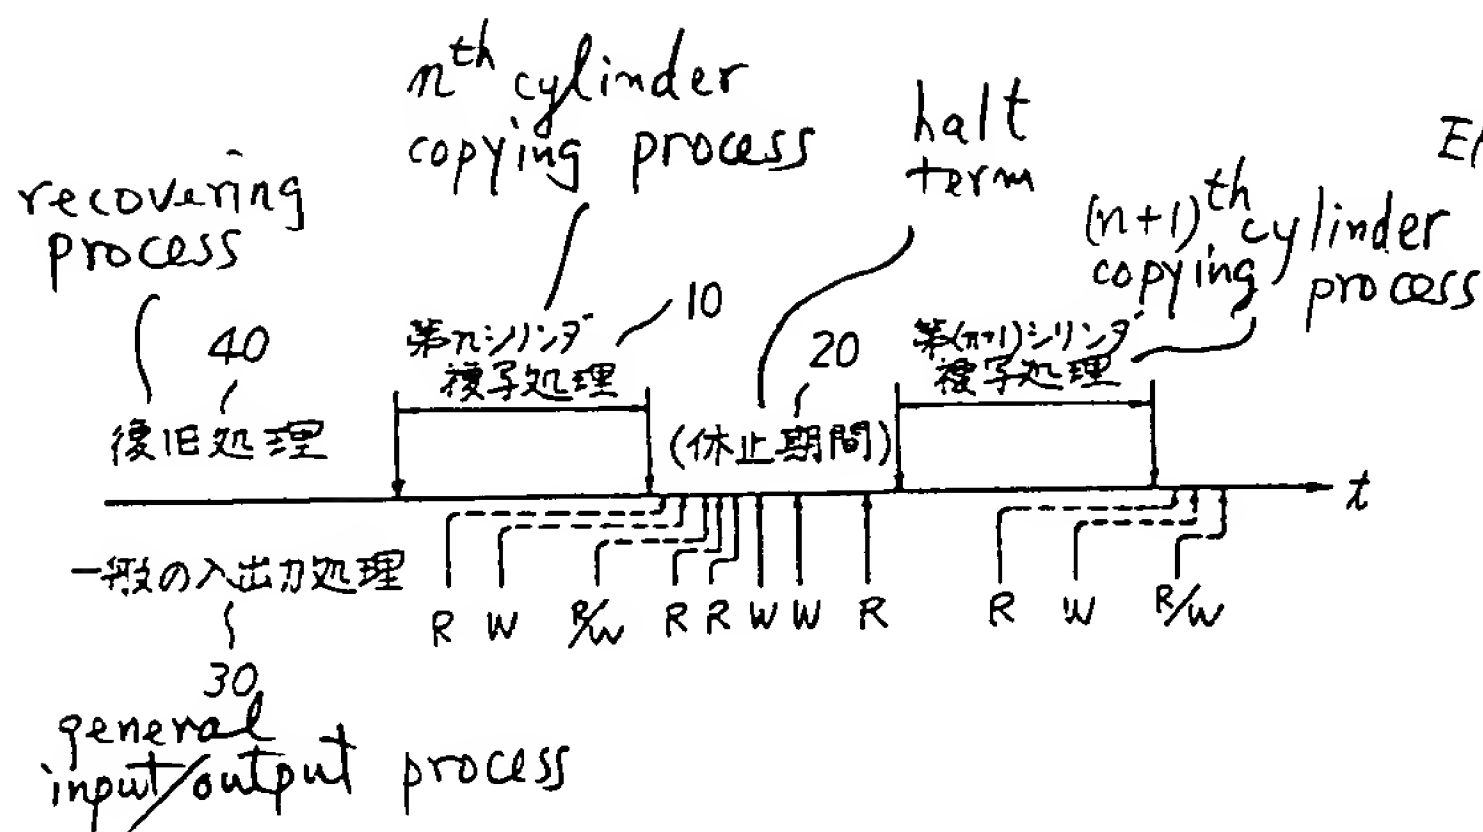 nth cylinder
copying process
halt
term
recovering
process
(n+1)th cylinder
copying process
10
40
20
第nシリンダ
複写処理
第(n+1)シリンダ
複写処理
復旧処理
(休止期間)
t
一般の入出力処理
R W R/W R R W W R R W R/W
30
general
input/output process